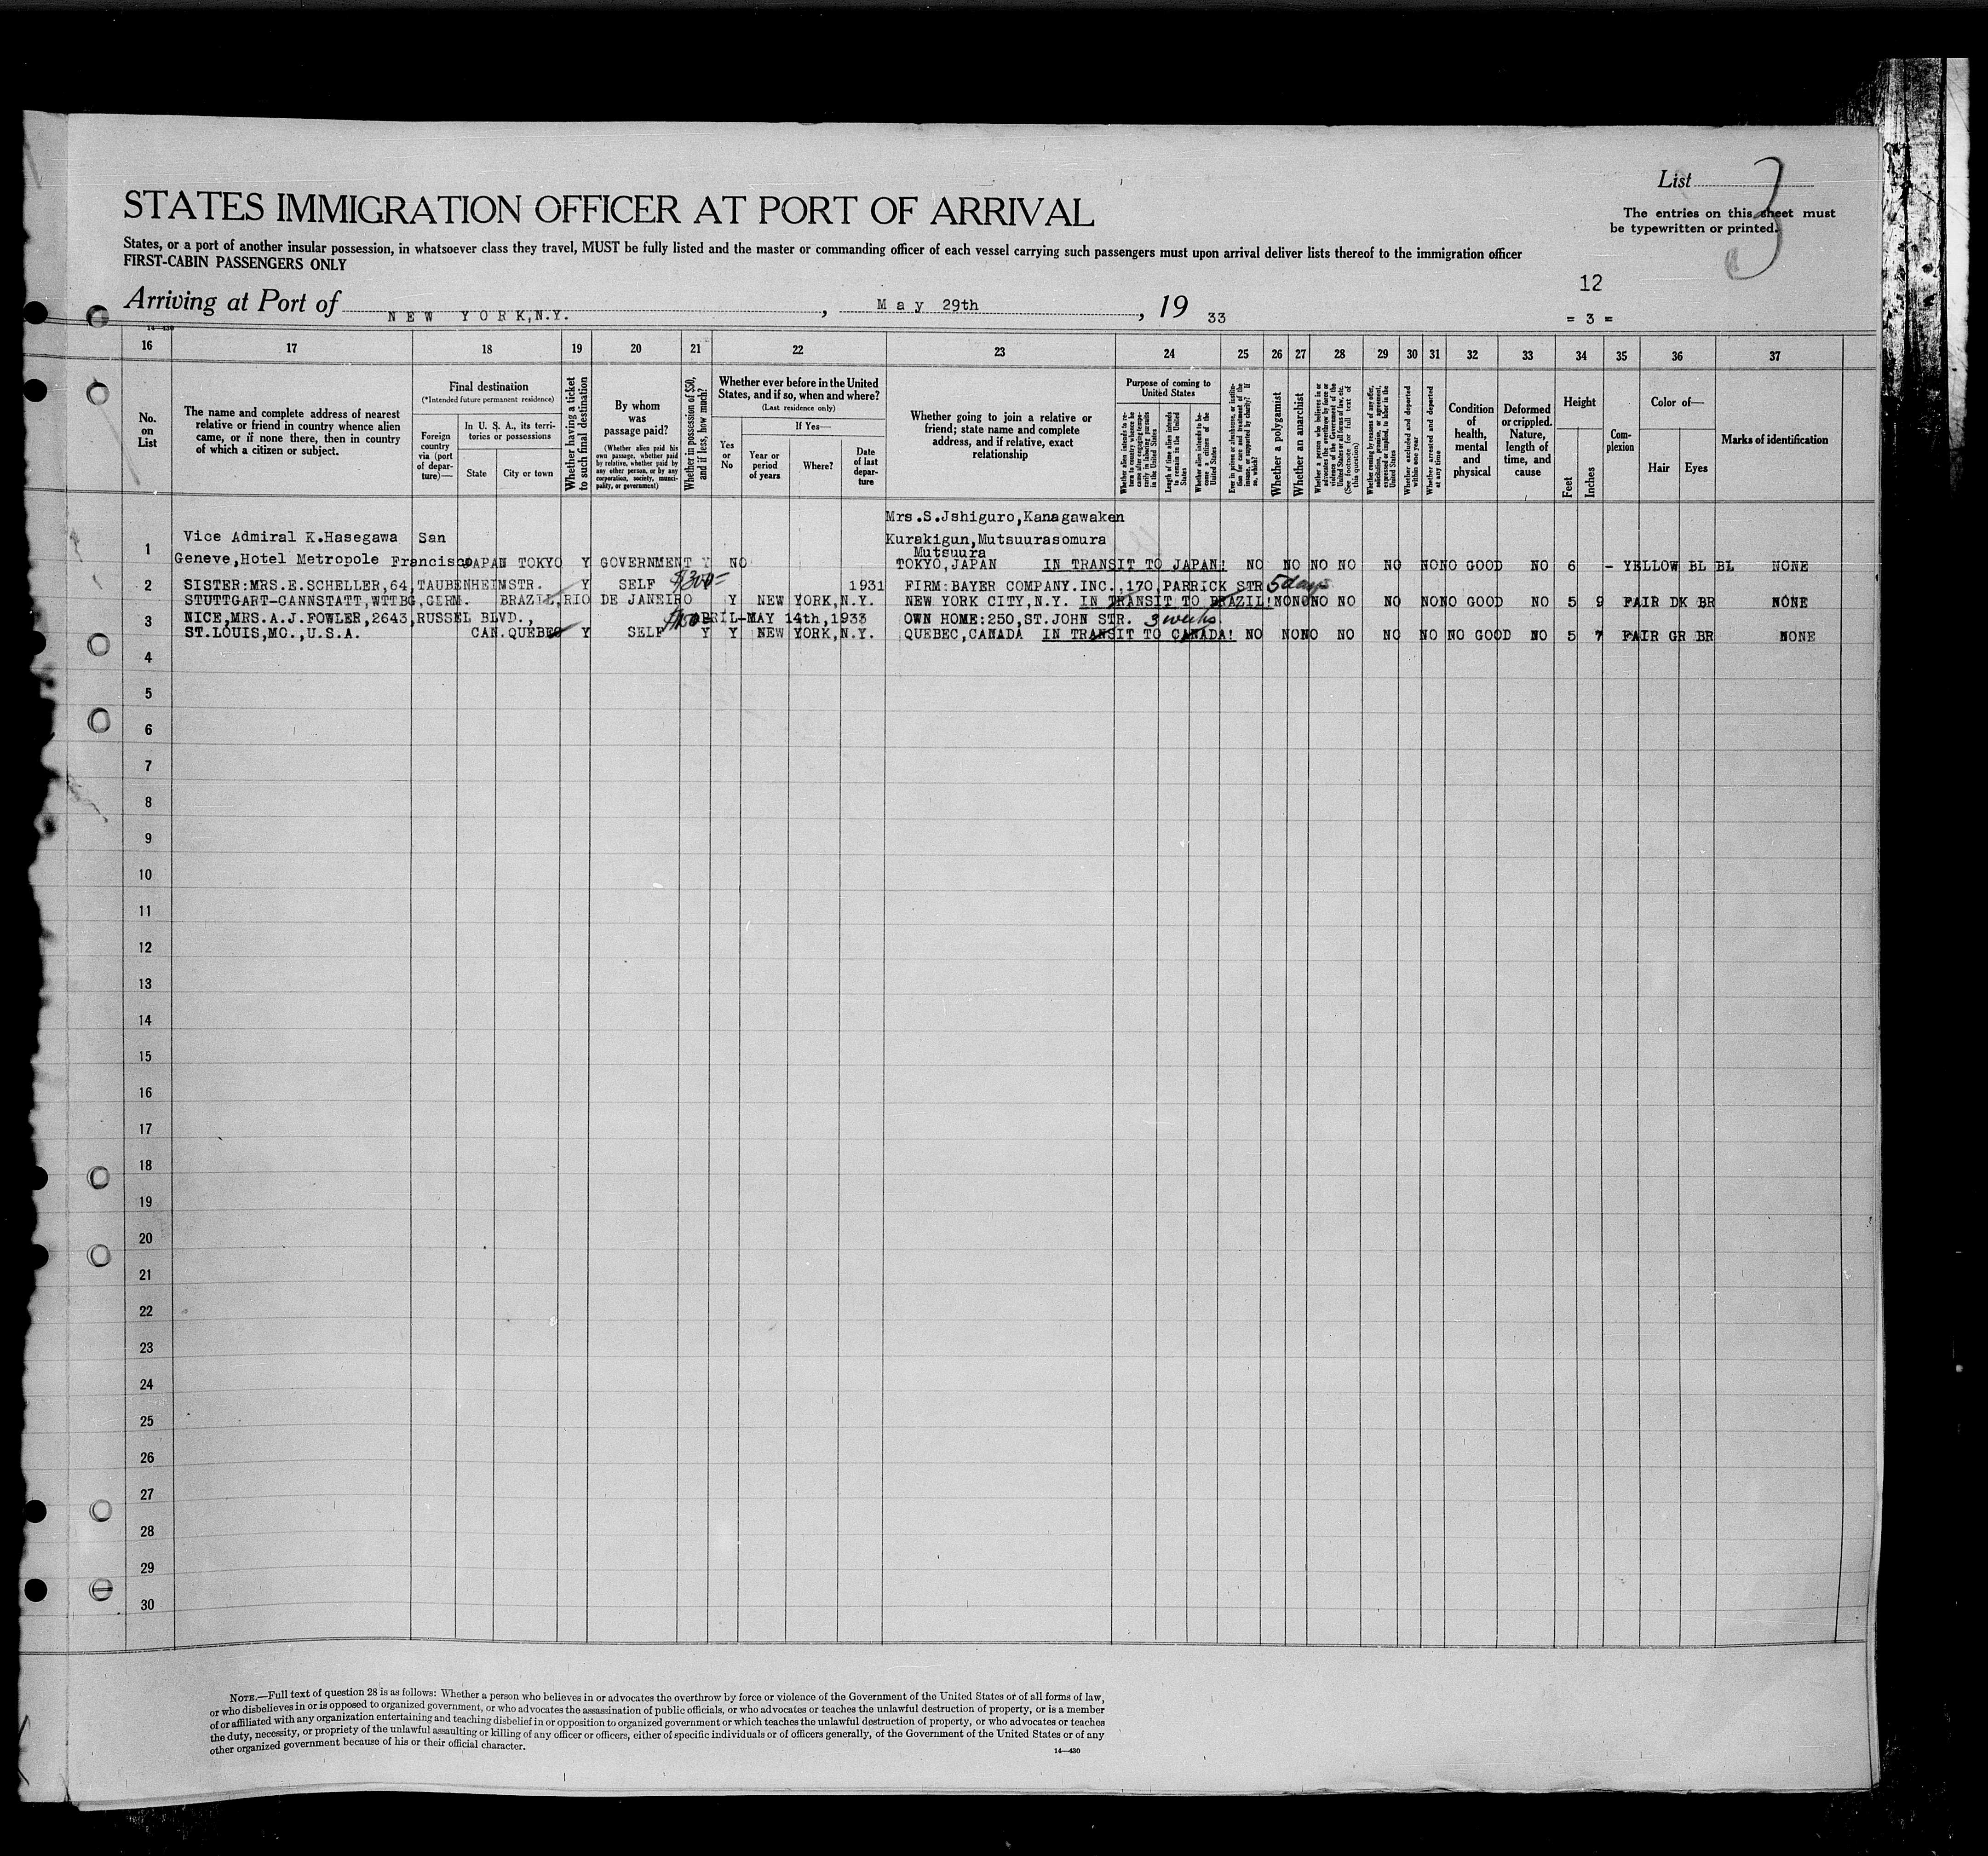 List 3
The entries on this sheet must
be typewritten or printed.
STATES IMMIGRATION OFFICER AT PORT OF ARRIVAL
States, or a port of another insular possession, in whatsoever class they travel, MUST be fully listed and the master or commanding officer of each vessel carrying such passengers must upon arrival deliver lists thereof to the immigration officer
FIRST-CABIN PASSENGERS ONLY
12
Arriving at Port of NEW YORK,N.Y. , May 29th , 19 33
= 3 =
14—430
16 17 18 19 20 21 22 23 24 25 26 27 28 29 30 31 32 33 34 35 36 37
No.
on
List
The name and complete address of nearest
relative or friend in country whence alien
came, or if none there, then in country
of which a citizen or subject.
Final destination
(*Intended future permanent residence)
Foreign
country
via (port
of depar-
ture)—
In U. S. A., its terri-
tories or possessions
State
City or town
Whether having a ticket
to such final destination
By whom
was
passage paid?
(Whether alien paid his
own passage, whether paid
by relative, whether paid by
any other person, or by any
corporation, society, munici-
pality, or government)
Whether in possession of $50,
and if less, how much?
Whether ever before in the United
States, and if so, when and where?
(Last residence only)
Yes
or
No
If Yes—
Year or
period
of years
Where?
Date
of last
depar-
ture
Whether going to join a relative or
friend; state name and complete
address, and if relative, exact
relationship
Purpose of coming to
United States
Whether alien intends to re-
turn to country whence he
came after engaging tempo-
rarily in laboring pursuits
in the United States
Length of time alien intends
to remain in the United
States
Whether alien intends to be-
come a citizen of the
United States
Ever in prison or almshouse, or institu-
tion for care and treatment of the
insane, or supported by charity? If
so, which?
Whether a polygamist
Whether an anarchist
Whether a person who believes in or
advocates the overthrow by force or
violence of the Government of the
United States or all forms of law, etc.
(See footnote for full text of
this question)
Whether coming by reasons of any offer,
solicitation, promise, or agreement,
expressed or implied, to labor in the
United States
Whether excluded and deported
within one year
Whether arrested and deported
at any time
Condition
of
health,
mental
and
physical
Deformed
or crippled.
Nature,
length of
time, and
cause
Height
Feet
Inches
Com-
plexion
Color of—
Hair
Eyes
Marks of identification
Mrs.S.Jshiguro,Kanagawaken
1 Vice Admiral K.Hasegawa San Kurakigun,Mutsuurasomura
Mutsuura
Geneve,Hotel Metropole Francisco JAPAN TOKYO Y GOVERNMENT Y NO TOKYO,JAPAN IN TRANSIT TO JAPAN! NO NO NO NO NO NONO GOOD NO 6 - YELLOW BL BL NONE
2 SISTER:MRS.E.SCHELLER,64,TAUBENHEIMSTR. Y SELF $300= 1931 FIRM:BAYER COMPANY.INC.,170,PARRICK STR 5 days
STUTTGART-CANNSTATT,WTTBG,GERM. BRAZIL,RIO DE JANEIRO Y NEW YORK,N.Y. NEW YORK CITY,N.Y. IN TRANSIT TO BRAZIL!NONONO NO NO NONO GOOD NO 5 9 FAIR DK BR NONE
3 NICE,MRS.A.J.FOWLER,2643,RUSSEL BLVD., $150 APRIL-MAY 14th,1933 OWN HOME:250,ST.JOHN STR. 3 weeks
ST.LOUIS,MO.,U.S.A. CAN.QUEBEC Y SELF Y Y NEW YORK,N.Y. QUEBEC,CANADA IN TRANSIT TO CANADA! NO NONO NO NO NO NO GOOD NO 5 7 FAIR GR BR NONE
4
5
6
7
8
9
10
11
12
13
14
15
16
17
18
19
20
21
22
23
24
25
26
27
28
29
30
NOTE.—Full text of question 28 is as follows: Whether a person who believes in or advocates the overthrow by force or violence of the Government of the United States or of all forms of law,
or who disbelieves in or is opposed to organized government, or who advocates the assassination of public officials, or who advocates or teaches the unlawful destruction of property, or is a member
of or affiliated with any organization entertaining and teaching disbelief in or opposition to organized government or which teaches the unlawful destruction of property, or who advocates or teaches
the duty, necessity, or propriety of the unlawful assaulting or killing of any officer or officers, either of specific individuals or of officers generally, of the Government of the United States or of any
other organized government because of his or their official character.
14—430